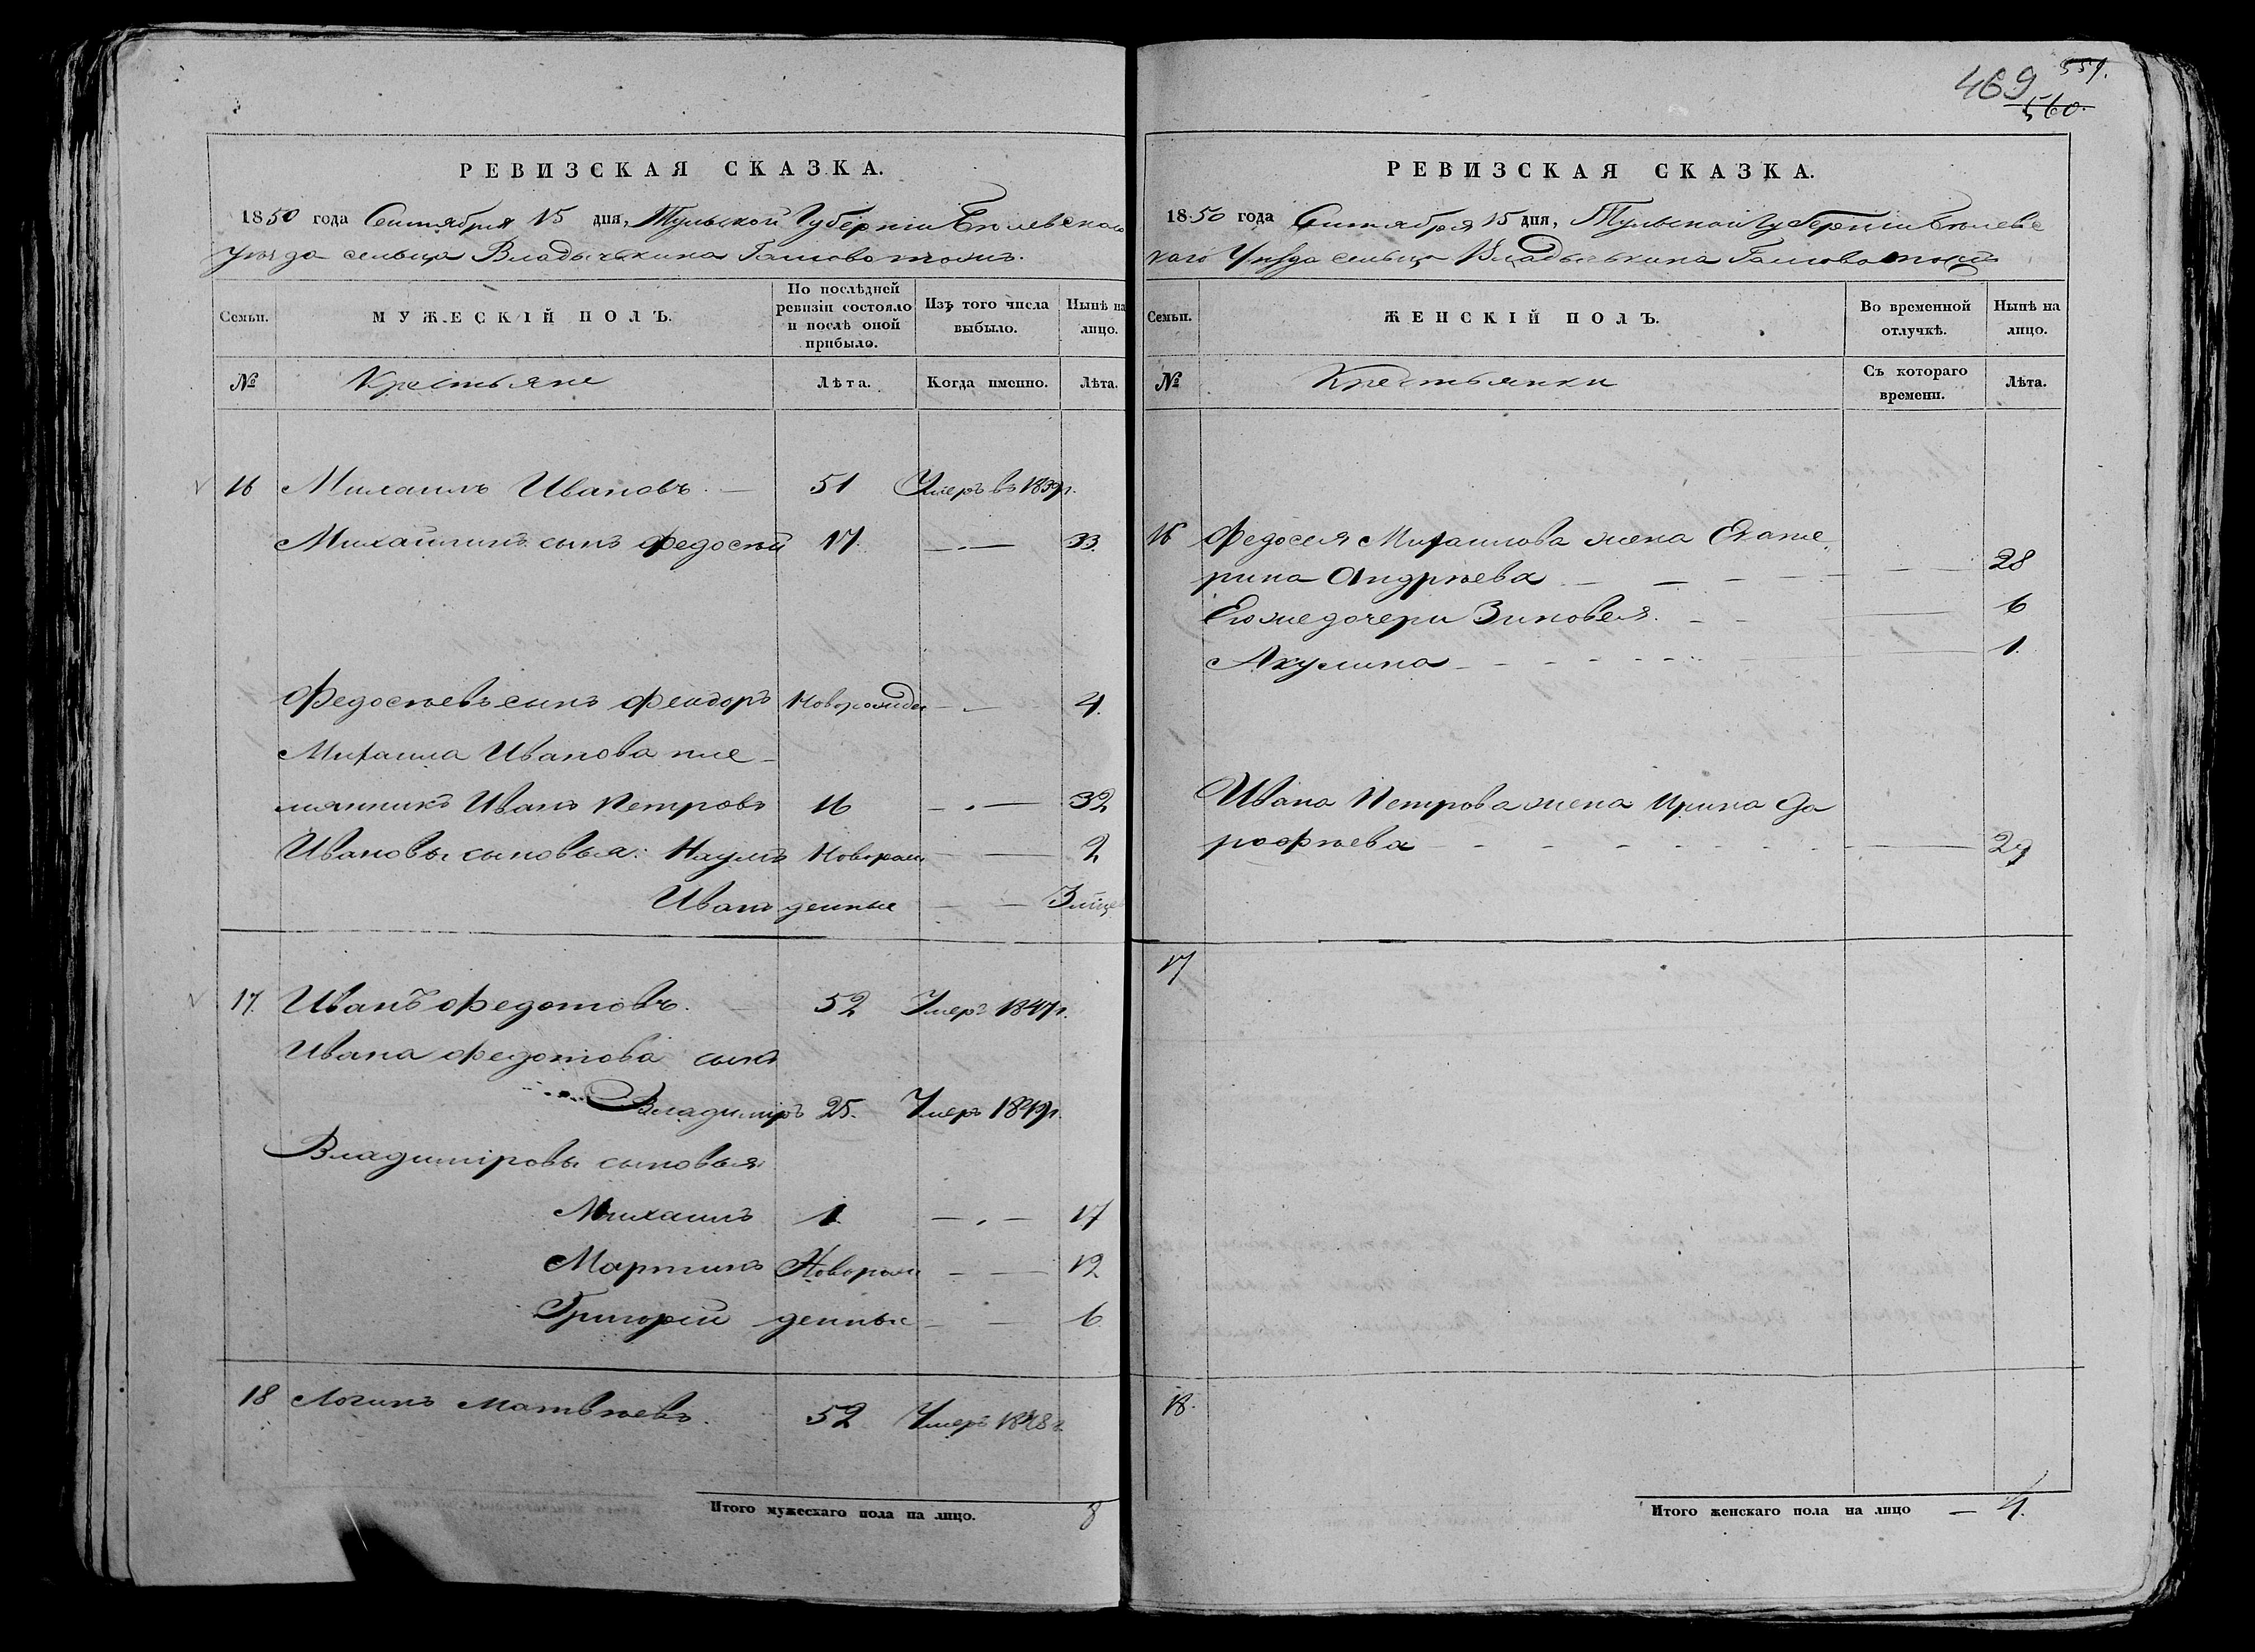 РЕВИЗСКАЯ СКАЗКА.
1850 года Сентября 15 дня, Тульской Губерніи Белевскаго
уезда сельца Владычкина
Семьи.
МУЖЕСКІЙ ПОЛЪ.
По послѣдней ревизіи состояло и послѣ оной прибыло.
Изъ того числа выбыло.
Нынѣ на лицо.
№
Крестьяне
Лѣта.
Когда именно.
Лѣта.
16 Михаилъ Ивановъ. — 51 Умеръ въ 1839г.
Михайлинъ сынъ Федосѣй 17. — . — 33.
Федосѣевъ сынъ Феодоръ Новорожден — . — 4.
Михаила Иванова пле-
мянникъ Иванъ Петровъ 16 — . — 32
Ивановы сыновья: Наумъ Новорож — — 2
Иванъ денные — — 3 мѣсе
17. Иванъ Федотовъ. — 52 Умеръ 1847г.
Ивана Федотова сынъ
Владиміръ 25. Умеръ 1849г.
Владиміровы сыновья
Михаилъ 1. — . — 17
Мартинъ Новорож — — 12
Григорій денные — — 6
18 Логинъ Матвѣевъ. 52 Умеръ 1848г.
Итого мужескаго пола на лицо. 8
469 559.
560.
РЕВИЗСКАЯ СКАЗКА.
1850 года Сентября 15 дня, Тульской Губерніи Белевс
каго Уѣзда сельца Владычькина
Семьи.
ЖЕНСКІЙ ПОЛЪ.
Во временной отлучкѣ.
Нынѣ на лицо.
№
Крестьянки
Съ котораго времени.
Лѣта.
16 Федосея Михаилова жена Екате-
рина Андрѣева — — — — 28
Его же дочери Зиновея. — — 6
Акулина — — — — 1.
Ивана Петрова жена Ирина До
рофѣева — — — — 29
17
18.
Итого женскаго пола на лицо — 4.